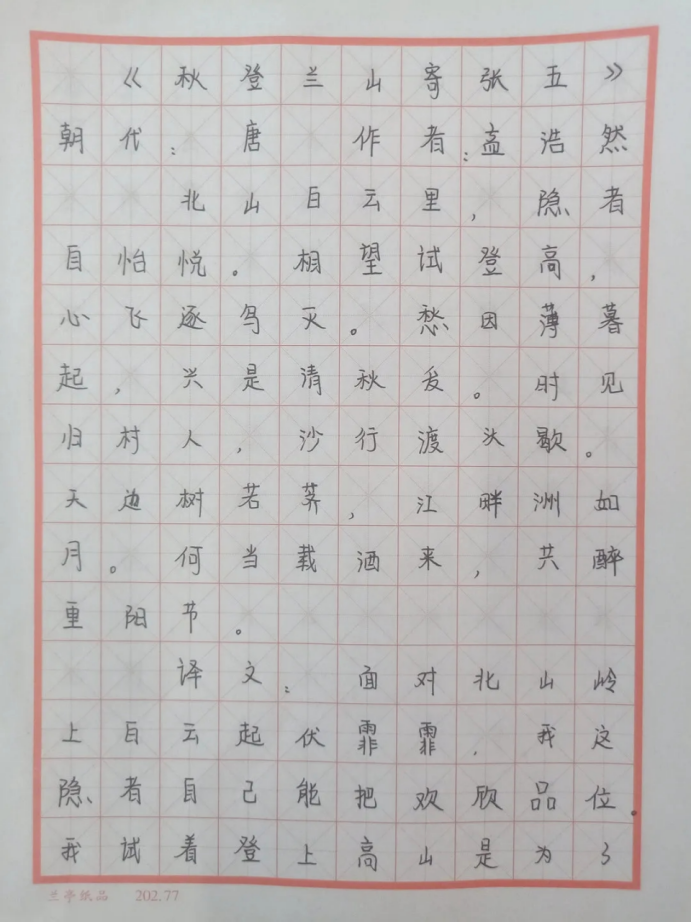 《秋登兰山寄张五》
朝代：唐 作者：孟浩然
北山白云里，隐者
自怡悦。相望试登高，
心飞逐鸟灭。愁因薄暮
起，兴是清秋发。时见
归村人，沙行渡头歇。
天边树若荠，江畔洲如
月。何当载酒来，共醉
重阳节。
译文：面对北山岭
上白云起伏霏霏，我这
隐者自己能把欢欣品位。
我试着登上高山是为了
兰亭纸品 202.77